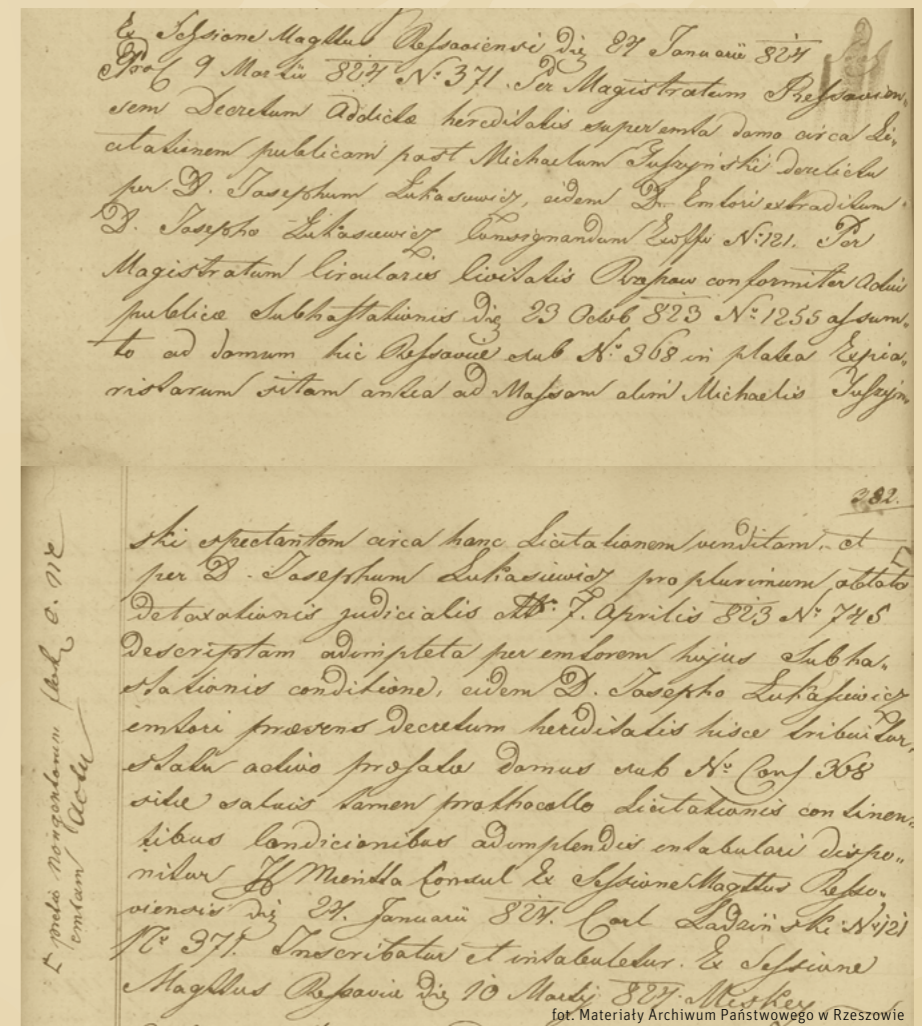 Ex Sessione Magttus Ressoviensi die 24 Januarii 824
Pras 9 Martii 824 N: 371. Per Magistratum Ressovien-
sem Decretum addictæ hereditatis super emta domo circa Li-
citationem publicam post Michaelum Juszyński derelicta
per D. Josephum Łukasiewicz, eidem D. Emtori extraditum
D. Josepho Łukasiewicz Consignandum Exoffo N: 121. Per
Magistratum Circularis Civitatis conformiter
publicæ Subhastationis die 23 Octob 823 No 1255 assum-
to ad domum hic Ressoviæ sub No 368 in platea Expia-
ristarum sitam antea ad Massam olim Michaelis Juszyń-
382.
ski spectantem circa hanc Licitationem venditam, et
per D. Josephum Łukasiewicz pro plurimum oblato
detaxationis judicialis 7. Aprilis 823 No 745
descriptam adimpleta per emtorem hujus Subha-
stationis conditione, eidem D. Josepho Łukasiewicz
emtori præsens decretum hereditatis hisce tribuitur,
statu activo præfatæ domus sub No Cons 368
sitæ salvis tamen prothocollo Licitationis continen-
tibus Condicionibus adimplendis intabulari dispo-
nitur Consul Ex Sessione Magttus Resso-
viensis die 24. Januarii 824. Carl Ladziński N: 121
No 371. Inscribatur et intabuletur. Ex Sessione
Magttus Ressoviæ die 10 Martij 824.
pretio Nongentorum
emtam
fot. Materiały Archiwum Państwowego w Rzeszowie